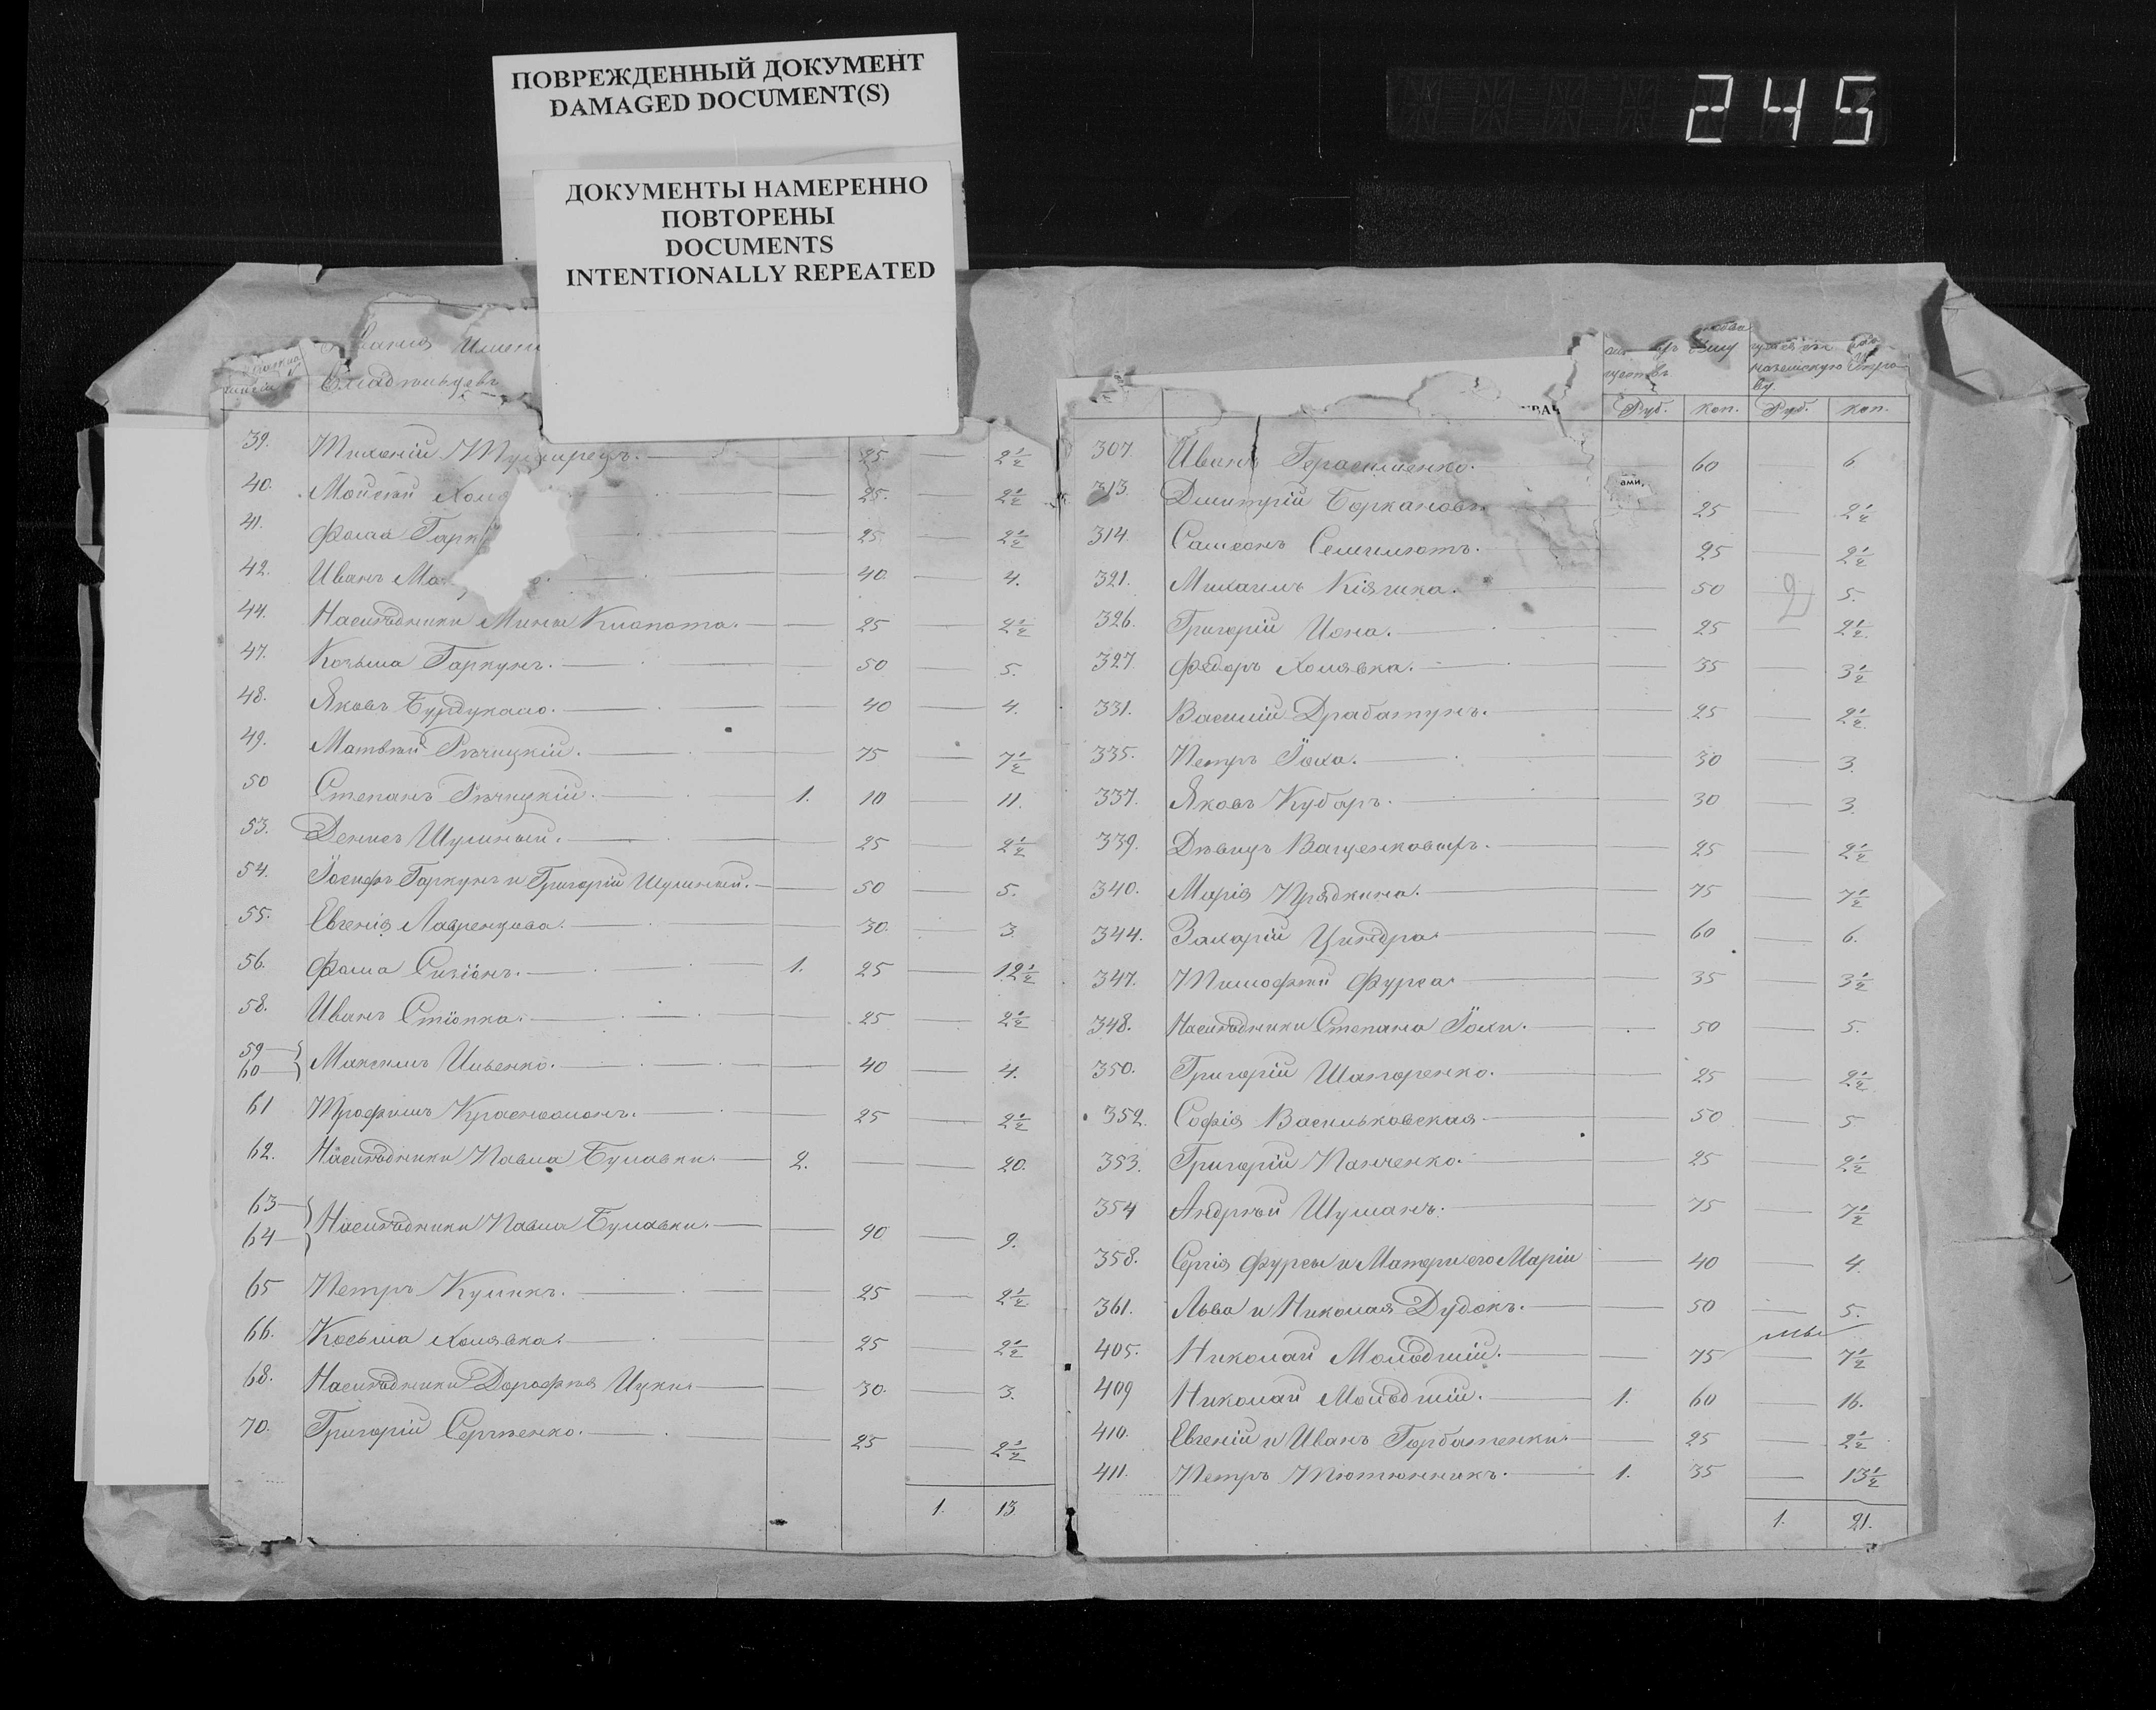 ПОВРЕЖДЕННЫЙ ДОКУМЕНТ
DAMAGED DOCUMENT(S)
ДОКУМЕНТЫ НАМЕРЕННО
ПОВТОРЕНЫ
DOCUMENTS
INTENTIONALLY REPEATED
245
Владѣльцевъ
39. 25 — 2½
40. Мойсей Хом 25. — 2½
41. Фома Гарк 25 — 2½
42. Иванъ Ма 40. — 4.
44. Наслѣдники Мины Клопота. — 25 — 2½
47. Козьма Гаркунъ. — 50 — 5.
48. Яковъ — 40 — 4.
49. Матвѣй Рѣчицкій. — 75 — 7½
50 Степанъ Рѣчицкій. — 1. 10 — 11.
53. Денисъ Шулиный. — 25 — 2½
54. Іосифъ Гаркунъ и Григорій Шулиный. — 50 — 5.
55. Евгенія Лавренцова. — 30. — 3.
56. Фома — 1. 25 — 12½
58. Иванъ Стіопка. — 25 — 2½
59 60 Максимъ Ильенко. — 40 — 4.
61 Трофимъ — 25 — 2½
62. Наслѣдники Павла Булавки. — 2. — 20.
63 64 Наслѣдники Павла Булавки. — 90 — 9.
65 Петръ Куликъ. — 25 — 2½
66. Косьма Холявка. — 25 — 2½
68. Наслѣдники Дорофѣя Цуки — 30. — 3.
70. Григорій Сергѣенко. — 25 — 2½
1. 13
Руб. Коп. Руб. Коп.
307. Иванъ Герасименко. 60 6
313. Дмитрій Боркановъ. 25 — 2½
314. Самсонъ — 25 — 2½
321. Михаилъ Кіяшка. — 50 — 5.
326. Григорій Иона. — 25 — 2½
327. Федоръ Холявка. — 35 — 3½
331. Василій Драбатунъ. — 25 — 2½
335. Петръ Іоха. — 30 — 3.
337. Яковъ Кубарь. — 30 — 3.
339. — 25 — 2½
340. Марія Прядкина. — 75 — 7½
344. Захарій Циндра. — 60 — 6.
347. Тимофѣй Фурса. — 35 — 3½
348. Наслѣдники Степана Іохи. — 50 — 5.
350. Григорій Шапоренко. — 25 — 2½
352. Софія Васильковская — 50 — 5
353. Григорій Панченко. — 25 — 2½
354 Андрѣй Шуманъ. — 75 — 7½
358. Сергія Фурсы и Матери его Маріи — 40 — 4.
361. Льва и Николая Дудокъ. — 50 — 5.
405. Николай Молодшій. — 75 — 7½
409 Николай Молодшій. — 1. 60 — 16.
410. Евгеній и Иванъ Горбатенки. — 25 — 2½
411. Петръ Тютюнникъ. — 1. 35 — 13½
1. 21.